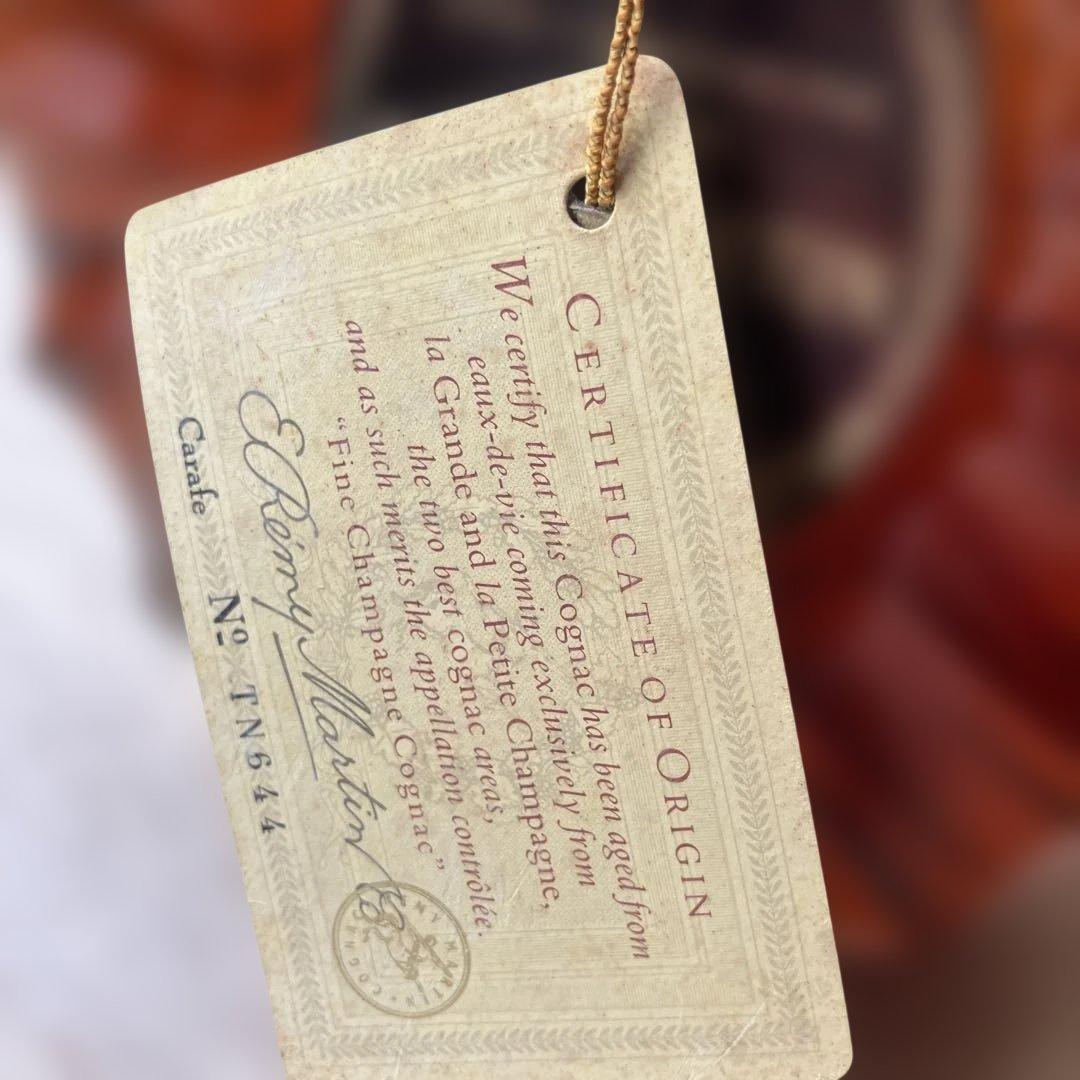 CERTIFICATE OF ORIGIN
We certify that this Cognac has been aged from
eaux-de-vie coming exclusively from
la Grande and la Petite Champagne,
the two best cognac areas,
and as such merits the appellation contrôlée.
“Fine Champagne Cognac”
E. Rémy Martin
Carafe Nº TN644